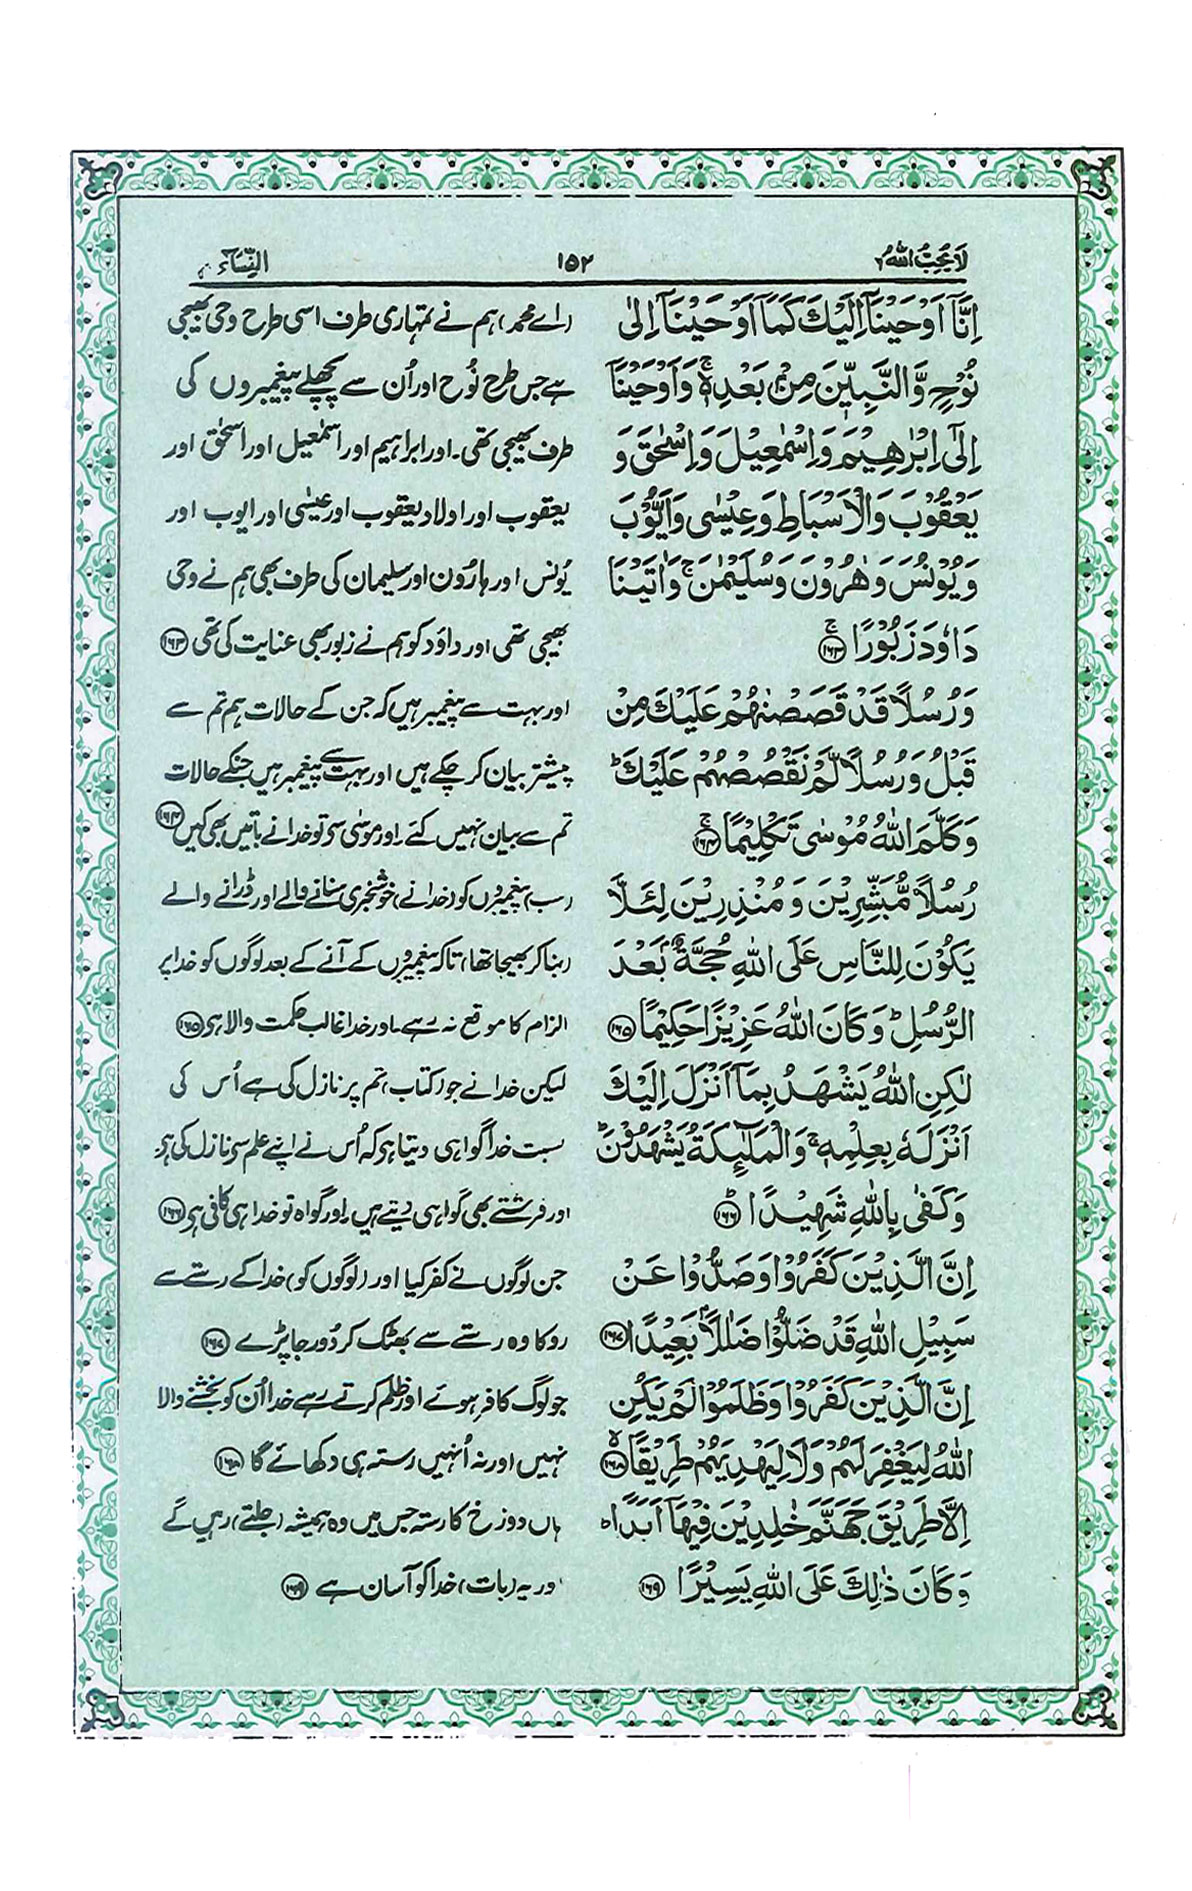 لَا يُحِبُّ اللّٰهُ ٦
١٥٢
النِّسَآء ٤
اِنَّآ اَوْحَيْنَآ اِلَيْكَ كَمَآ اَوْحَيْنَآ اِلٰى
نُوْحٍ وَّالنَّبِيّٖنَ مِنْۢ بَعْدِهٖ ۚ وَاَوْحَيْنَآ
اِلٰٓى اِبْرٰهِيْمَ وَاِسْمٰعِيْلَ وَاِسْحٰقَ وَ
يَعْقُوْبَ وَالْاَسْبَاطِ وَعِيْسٰى وَاَيُّوْبَ
وَيُوْنُسَ وَهٰرُوْنَ وَسُلَيْمٰنَ ۚ وَاٰتَيْنَا
دَاوٗدَ زَبُوْرًا ۚ ﴿۱۶۳﴾
وَرُسُلًا قَدْ قَصَصْنٰهُمْ عَلَيْكَ مِنْ
قَبْلُ وَرُسُلًا لَّمْ نَقْصُصْهُمْ عَلَيْكَ ؕ
وَكَلَّمَ اللّٰهُ مُوْسٰى تَكْلِيْمًا ۚ ﴿۱۶۴﴾
رُسُلًا مُّبَشِّرِيْنَ وَمُنْذِرِيْنَ لِئَلَّا
يَكُوْنَ لِلنَّاسِ عَلَى اللّٰهِ حُجَّةٌۢ بَعْدَ
الرُّسُلِ ؕ وَكَانَ اللّٰهُ عَزِيْزًا حَكِيْمًا ﴿۱۶۵﴾
لٰكِنِ اللّٰهُ يَشْهَدُ بِمَآ اَنْزَلَ اِلَيْكَ
اَنْزَلَهٗ بِعِلْمِهٖ ۚ وَالْمَلٰٓئِكَةُ يَشْهَدُوْنَ ؕ
وَكَفٰى بِاللّٰهِ شَهِيْدًا ؕ ﴿۱۶۶﴾
اِنَّ الَّذِيْنَ كَفَرُوْا وَصَدُّوْا عَنْ
سَبِيْلِ اللّٰهِ قَدْ ضَلُّوْا ضَلٰلًاۢ بَعِيْدًا ﴿۱۶۷﴾
اِنَّ الَّذِيْنَ كَفَرُوْا وَظَلَمُوْا لَمْ يَكُنِ
اللّٰهُ لِيَغْفِرَ لَهُمْ وَلَا لِيَهْدِيَهُمْ طَرِيْقًا ۙ ﴿۱۶۸﴾
اِلَّا طَرِيْقَ جَهَنَّمَ خٰلِدِيْنَ فِيْهَآ اَبَدًا ؕ
وَكَانَ ذٰلِكَ عَلَى اللّٰهِ يَسِيْرًا ﴿۱۶۹﴾
(اے محمد) ہم نے تمہاری طرف اسی طرح وحی بھیجی
ہے جس طرح نُوح اور اُن سے پچھلے پیغمبروں کی
طرف بھیجی تھی۔ اور ابراہیم اور اسمٰعیل اور اسحٰق اور
یعقوب اور اولاد یعقوب اور عیسٰی اور ایوب اور
یُونس اور ہارُون اور سلیمان کی طرف بھی ہم نے وحی
بھیجی تھی اور داؤد کو ہم نے زبور بھی عنایت کی تھی ﴿۱۶۳﴾
اور بہت سے پیغمبر ہیں کہ جن کے حالات ہم تم سے
پیشتر بیان کر چکے ہیں اور بہت سے پیغمبر ہیں جنکے حالات
تم سے بیان نہیں کئے۔ اور موسٰی سے تو خدا نے باتیں بھی کیں ﴿۱۶۴﴾
(سب) پیغمبروں کو (خدا نے) خوشخبری سنانے والے اور ڈرانے والے
(بنا کر بھیجا تھا) تاکہ پیغمبروں کے آنے کے بعد لوگوں کو خدا پر
الزام کا موقع نہ رہے۔ اور خدا غالب حکمت والا ہے ﴿۱۶۵﴾
لیکن خدا نے جو (کتاب) تم پر نازل کی ہے اُس کی
نسبت خدا گواہی دیتا ہے کہ اُس نے اپنے علم سے نازل کی ہے
اور فرشتے بھی گواہی دیتے ہیں۔ اور گواہ تو خدا ہی کافی ہے ﴿۱۶۶﴾
جن لوگوں نے کفر کیا اور (لوگوں کو) خدا کے رستے سے
روکا وہ رستے سے بھٹک کر دُور جا پڑے ﴿۱۶۷﴾
جو لوگ کافر ہوئے اور ظلم کرتے رہے خدا اُن کو بخشنے والا
نہیں اور نہ اُنہیں رستہ ہی دکھائے گا ﴿۱۶۸﴾
ہاں دوزخ کا رستہ جس میں وہ ہمیشہ (جلتے) رہیں گے
اور یہ (بات) خدا کو آسان ہے ﴿۱۶۹﴾